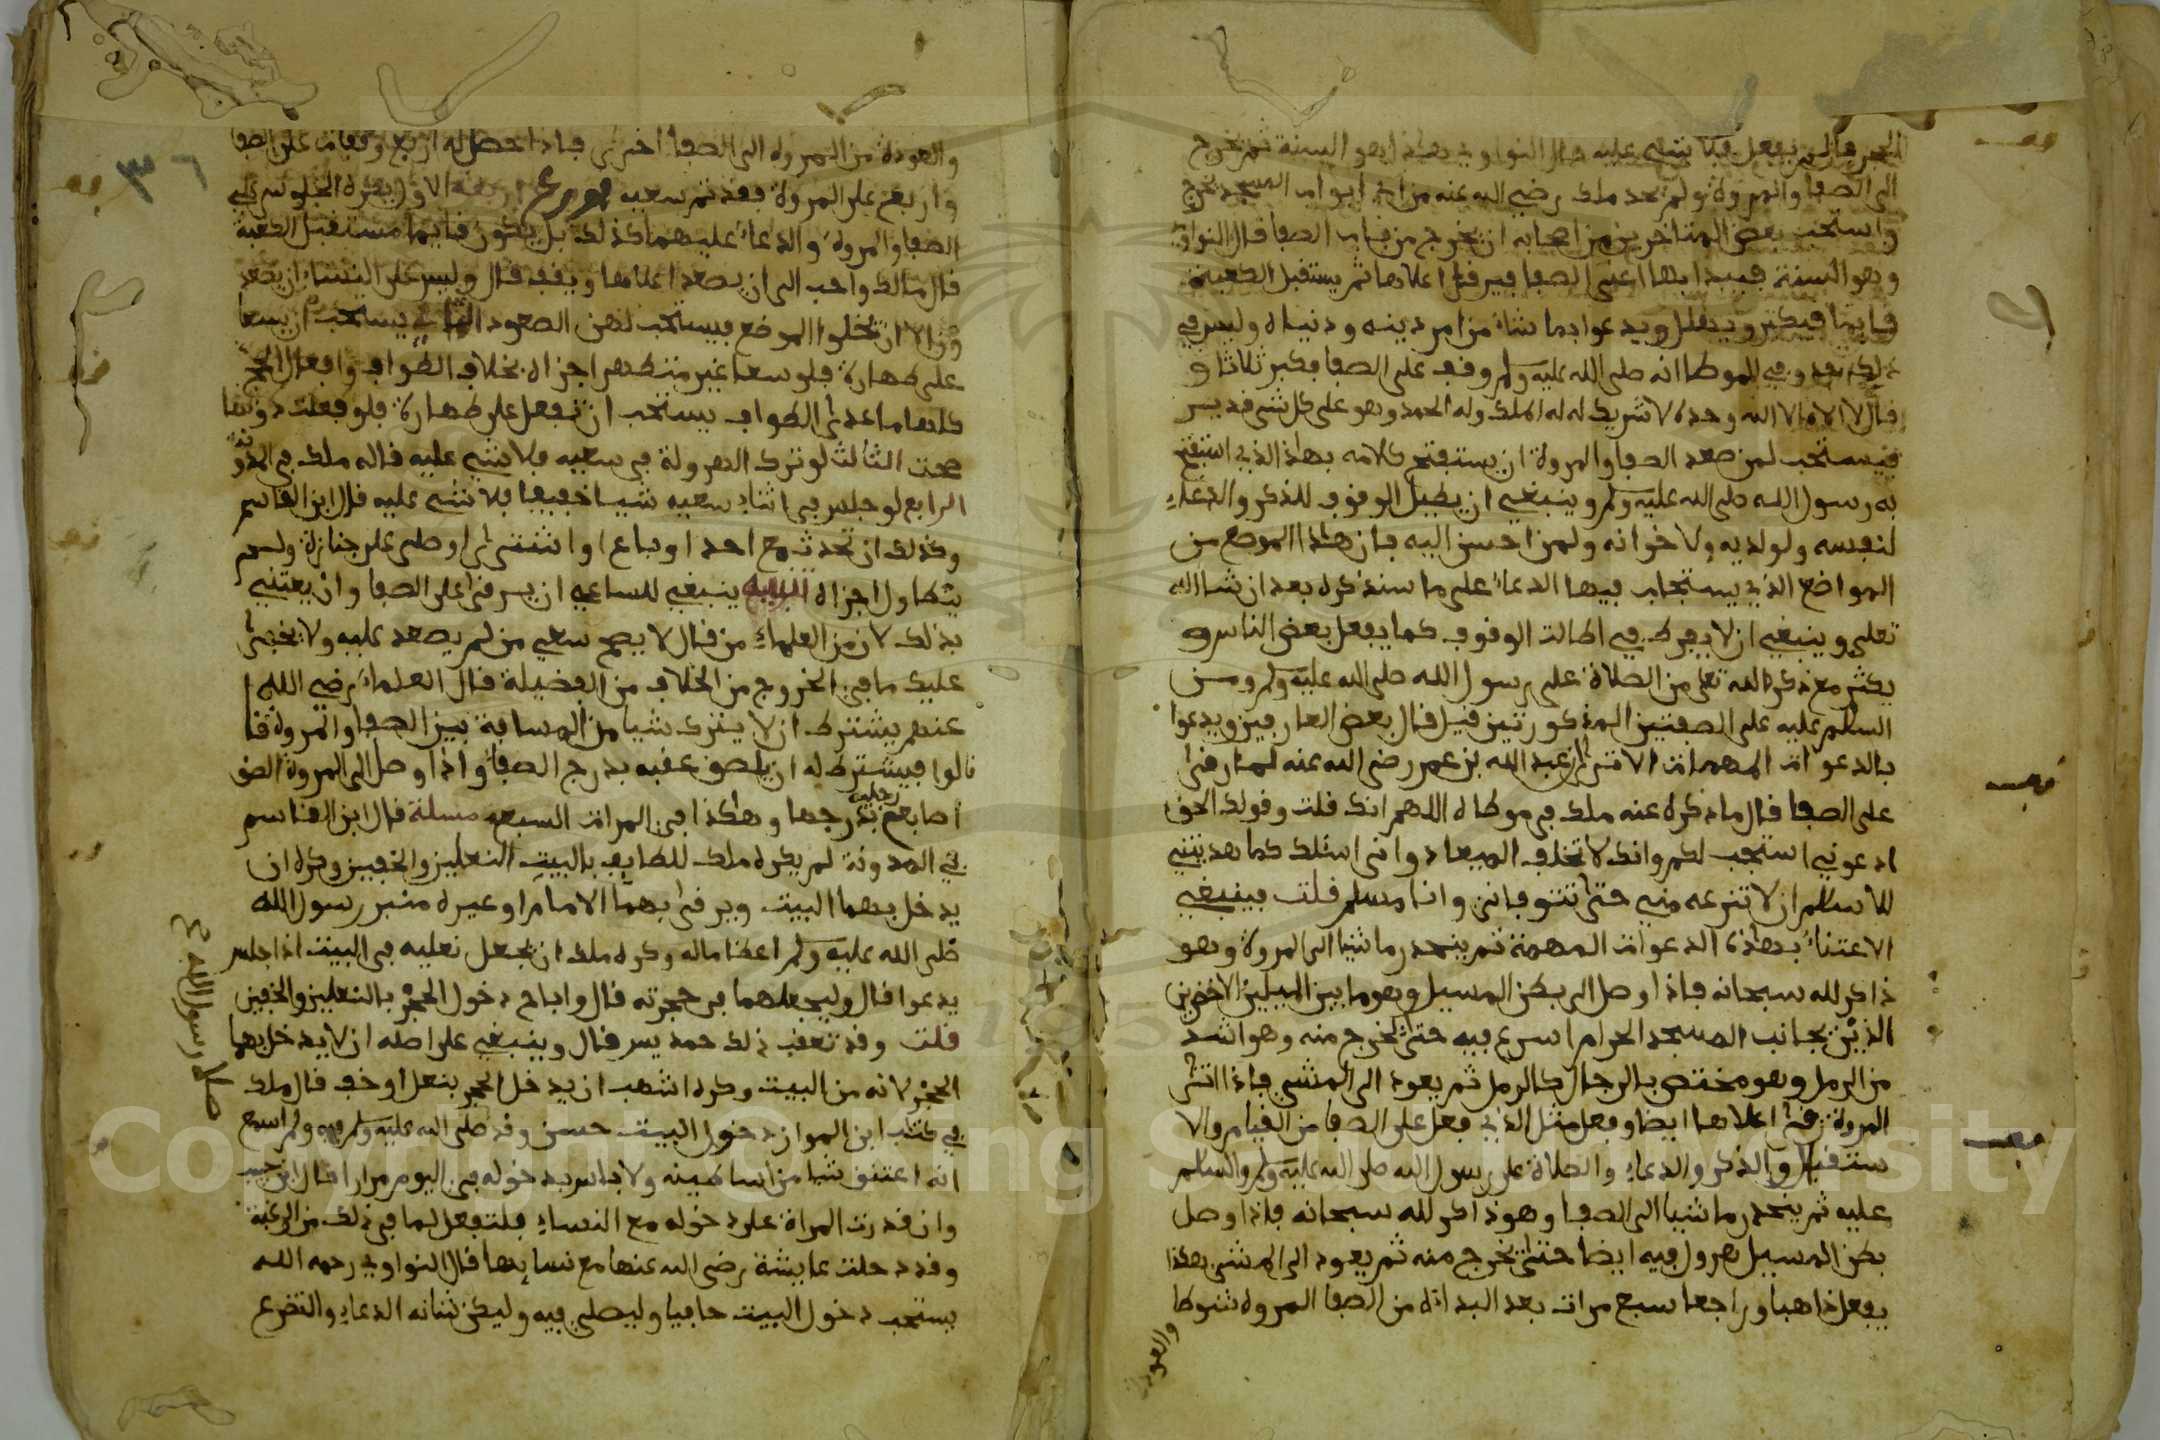 الحجر فإن لم يفعل فلا شيء عليه قال النواوي وهذا هو السنة ثم يخرج
الى الصفا والمروة ولم يحد ملك رضي الله عنه من اي ابواب المسجد يخرج
واستحب بعض المتاخرين من اصحابه ان يخرج من باب الصفا قال النواوي
وهو السنة فيبدا بها اعني الصفا فيرقى اعلاها ثم يستقبل الكعبة
قايما فيكبر ويهلل ويدعوا بما شاء من امر دينه ودنياه وليس في
ذلك حد وفي الموطا انه صلى الله عليه ولم وقف على الصفا فكبر ثلاثا و
قال لا اله الا الله وحده لا شريك له له الملك وله الحمد وهو على كل شي قدير
فيستحب لمن صعد الصفا والمروة ان يستفتح كلامه بهذا الذي استفتح
به رسول الله صلى الله عليه ولم وينبغي ان يطيل الوقوف للذكر والدعاء
لنفسه ولولديه ولاخوانه ولمن احسن اليه فان هذا الموضع من
المواضع الذي يستجاب فيها الدعاء على ما سنذكره بعد ان شا الله
تعلى وينبغي ان لا يفرط في اطالت الوقوف كما يفعل بعض الناس و
يكثر مع ذكر الله تعلى من الصلاة على رسول الله صلى الله عليه ولم ومن
السلم عليه على الصفتين المذكورتين قيل قال بعض العارفين ويدعوا
بالدعوات المهمات الا ترى ان عبد الله بن عمر رضى الله عنه لما رقى
على الصفا قال ما ذكره عنه ملك في موطاه اللهم انك قلت وقولك الحق
ادعوني استجب لكم وانك لا تخلف الميعاد واني اسئلك كما هديتني
للاسلم ان لا تنزعه مني حتى تتوفاني وانا مسلم قلت فينبغي
الاعتناء بهذه الدعوات المهمة ثم ينحدر ماشيا الى المروة وهو
ذاكر لله سبحانه فاذا وصل الى بطن المسيل وهو ما بين الميلين الاخضرين
الذين بجانب المسجد الحرام اسرع فيه حتى يخرج منه وهو اشد
من الرمل وهو مختص بالرجال كالرمل ثم يعود الى المشي فاذا اتى
المروة رقى اعلاها ايضا وفعل مثل الذي فعل على الصفا من القيام والا
ستقبال والذكر والدعاء والصلاة على رسول الله صلى الله عليه ولم والسلم
عليه ثم ينحدر ماشيا الى الصفا وهو ذاكر لله سبحانه فاذا وصل
بطن المسيل هرول فيه ايضا حتى يخرج منه ثم يعود الى المشي هكذا
يفعل ذاهبا وراجعا سبع مرات بعد البداة من الصفا المروة شوطا
والعودة
والعودة من المروة الى الصفا اخرى فاذا حصل له اربع وقفات على الصفا
واربع على المروة فقد تم سعيه الاول يكره الجلوس على
الصفا والمروة والدعاء عليهما كذلك بل يكون قايما مستقبل الكعبة
قال مالك واحب الى ان يصعد اعلاهما ويقف قال وليس على النساء ان يصعد
ن الا ان يخلوا الموضع فيستحب لهن الصعود الثاني يستحب ان يسعا
على طهارة فلو سعا غير متطهر اجزاه بخلاف الطواف وافعال الحج
كلها ما عدى الطواف يستحب ان تفعل على طهارة فلو فعلت دونها
صحت الثالث لو ترك الهرولة في سعيه فلا شي عليه قاله ملك في المدونة
الرابع لو جلس في اثناء سعيه شيا خفيفا فلا شي عليه قال ابن القاسم
وكذلك ان تحدث مع احد او باع او اشترى او صلى على جنازة ولم
يتطاول اجزاه ينبغي للساعي ان يرقى على الصفا وان يعتني
بذلك لان من العلماء من قال لا يصح سعي من لم يصعد عليه ولا يخفى
عليك ما في الخروج من الخلاف من الفضيلة قال العلماء رضي الله
عنهم يشترط ان لا يترك شيا من المسافة بين الصفا والمروة قا
لوا فيشترط له ان يلصق عقبه بدرج الصفا واذا وصل الى المروة الصق
اصابع رجليه بدرجها وهكذا في المرات السبعه مسلة قال ابن القاسم
في المدونة لم يكره ملك للطايف بالبيت النعلين والخفين وكره ان
يدخل بهما البيت ويرقى بهما الامام او غيره منبر رسول الله
صلى الله عليه ولم اعظاما له وكره ملك ان يجعل نعليه في البيت اذا جلس
يدعوا قال وليجعلهما في حجزته قال واباح دخول الحجر بالنعلين والخفين
قلت وقد تعقب ذلك حمديس قال وينبغي على اصله ان لا يدخل بهما
الحجر لانه من البيت وكره اشهب ان يدخل الحجر بنعل او خف قال ملك
في كتاب ابن المواز دخول البيت حسن وقد صلى الله عليه ولم فيه ولم اسمع
انه اعتنق شيا من اساطينه ولا باس بدخوله في اليوم مرارا قال ابن حبيب
وان قدرت المراة على دخوله مع النساء فلتفعل لما في ذلك من الرغبة
وقد دخلت عايشة رضى الله عنها مع نسايها قال النواوي رحمه الله
يستحب دخول البيت حافيا وليصلي فيه وليكن شانه الدعاء والتضرع